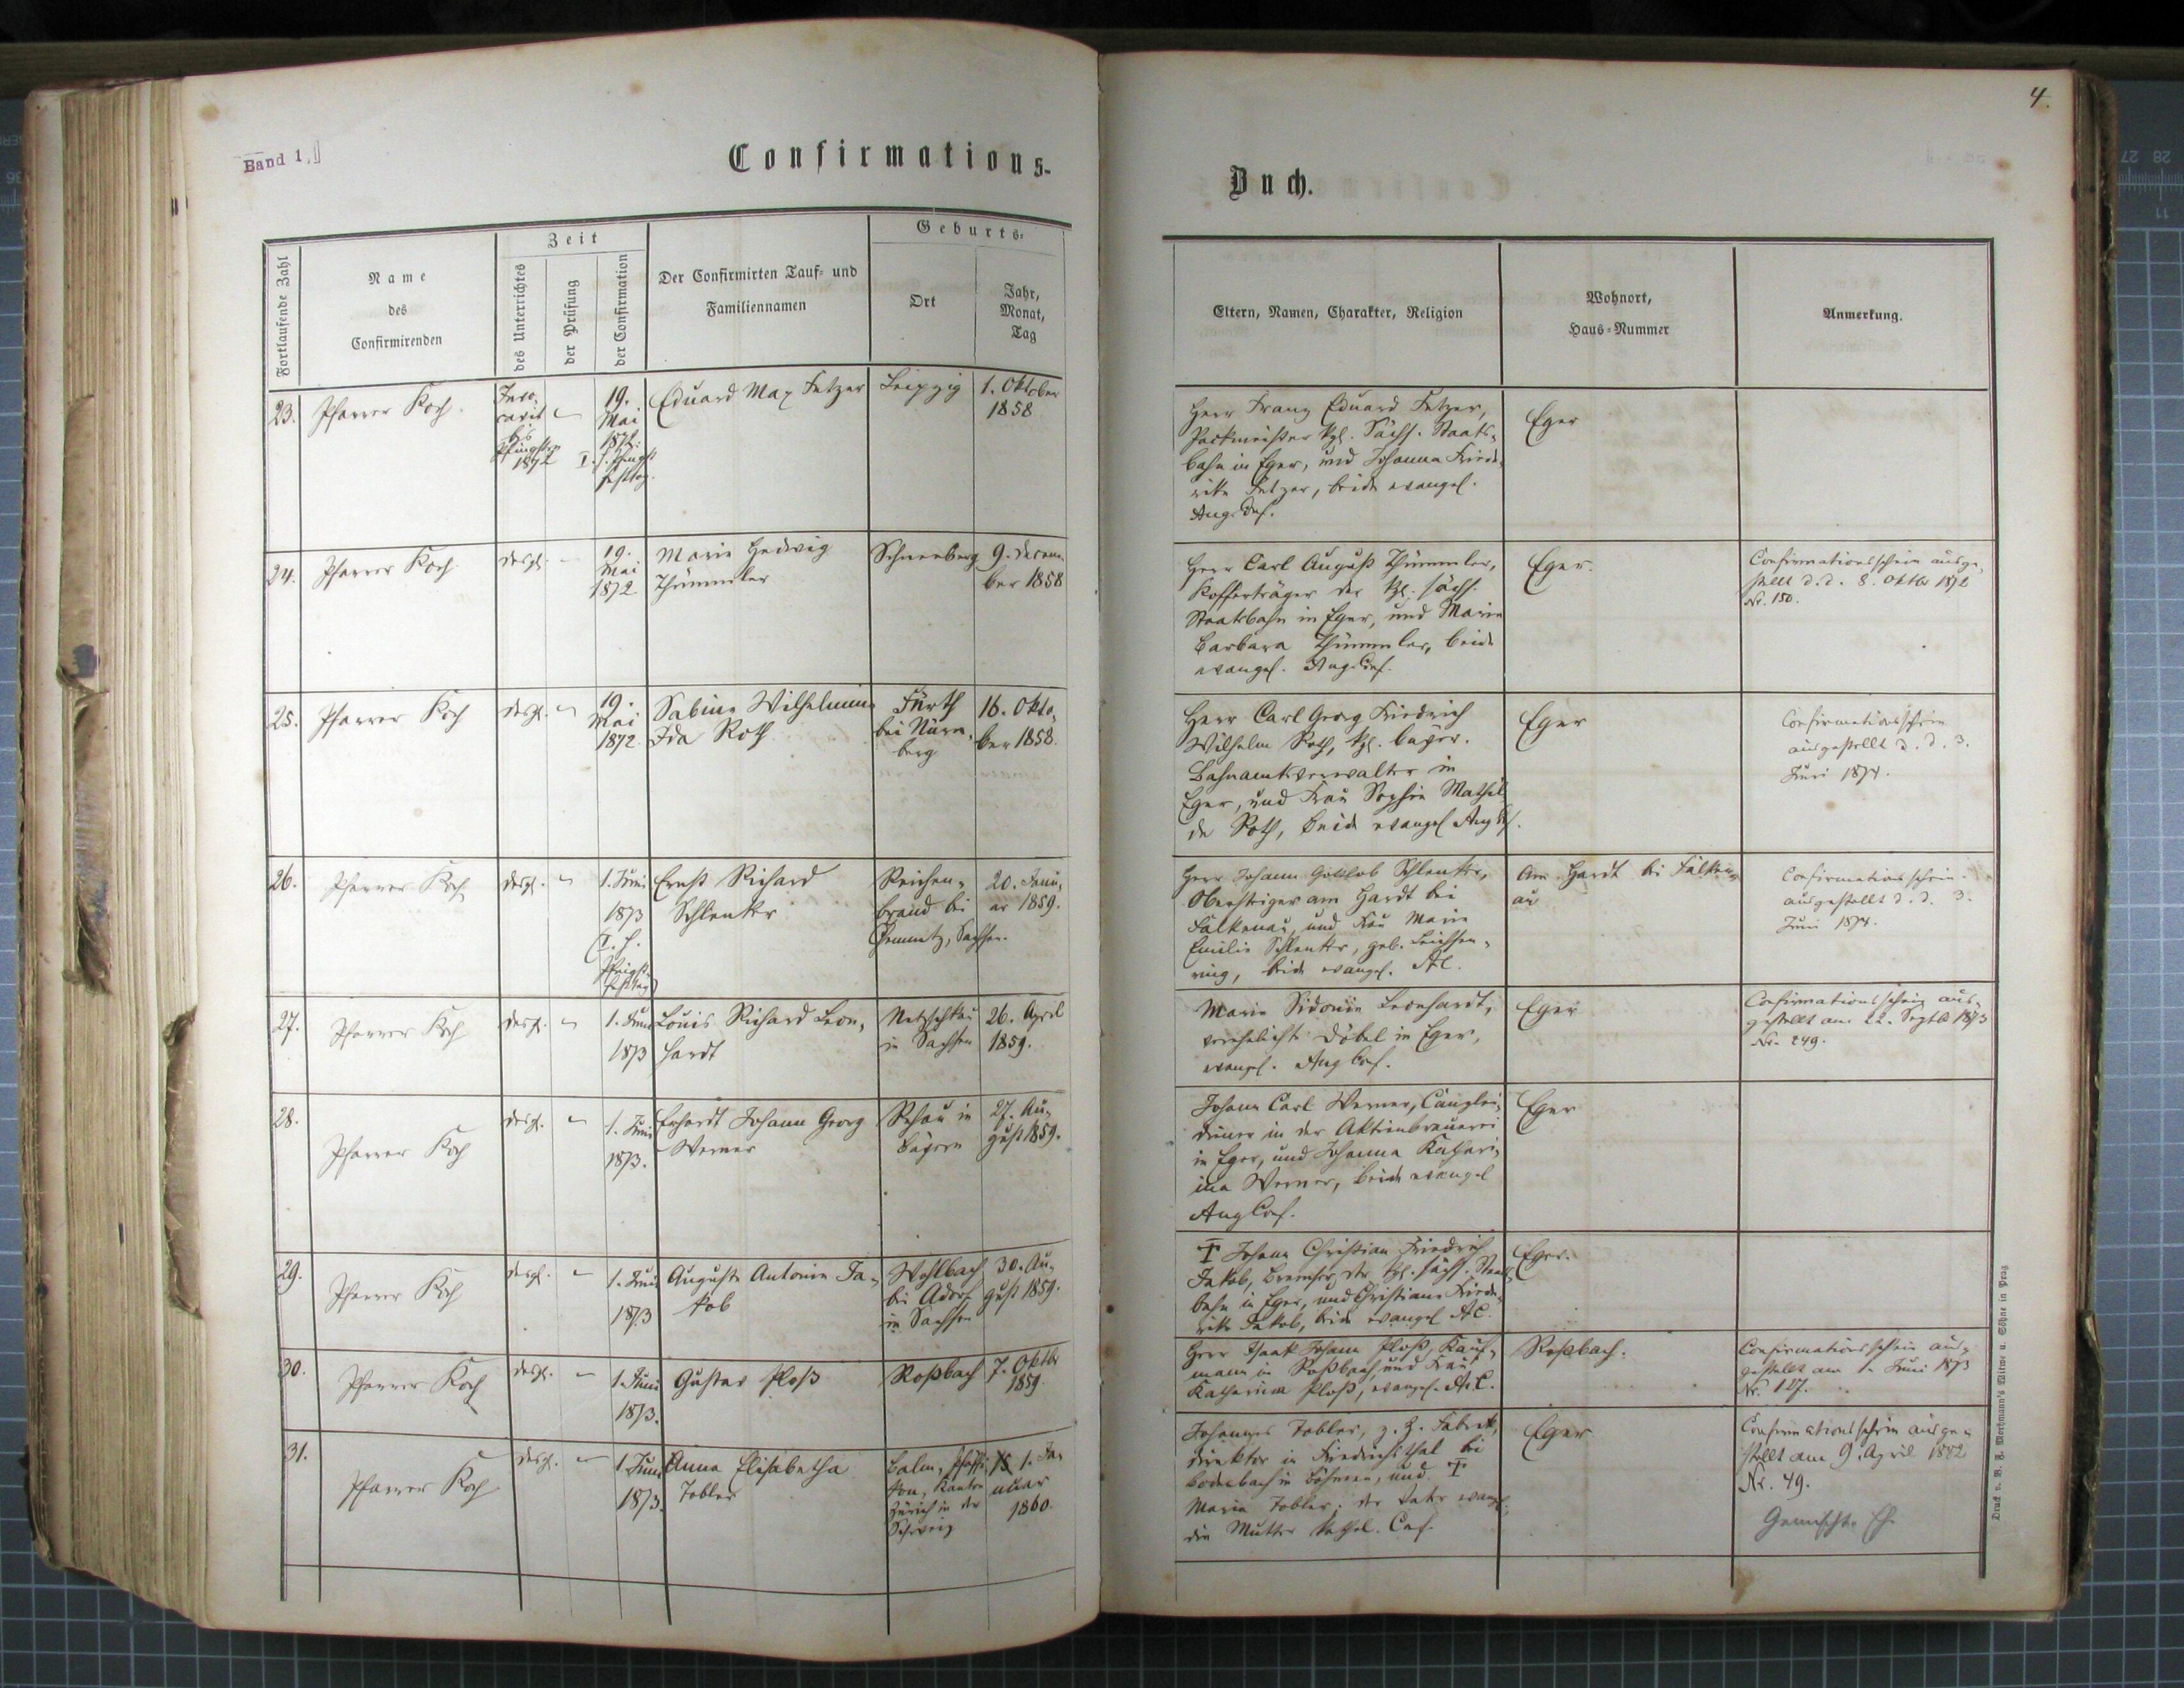 Band 1.
Confirmations-
Buch.
4.
Fortlaufende Zahl
Name
des
Confirmirenden
Zeit
des Unterrichtes
der Prüfung
der Confirmation
Der Confirmirten Tauf= und
Familiennamen
Geburts=
Ort
Jahr,
Monat,
Tag
Eltern, Namen, Charakter, Religion
Wohnort,
Haus=Nummer
Anmerkung.
23.
Pfarrer Koch
Invo,
cavit
bis
Pfingsten
1872
19.
Mai
1872.
Eduard Max Fetzer
Leipzig
1. Oktober
1858
Herr Franz Eduard Fetzer,
Packmeister kgl. Sächs. Staats-
bahn in Eger, und Johanna Friede-
rike Fetzer, beide evangel.
Augs. Conf.
Eger
24.
Pfarrer Koch
desgl.
19.
Mai
1872
Marie Hedwig
Thümmler
Schneeberg
9. Decem-
ber 1858
Herr Carl August Thümmler,
Kofferträger der kgl. sächs.
Staatsbahn in Eger, und Marie
Barbara Thümmler, beide
evangel. Aug. Conf.
Eger.
Confirmationsschein ausge-
stellt d. d. 8. Oktbr 1872
Nr. 150.
25.
Pfarrer Koch
desgl.
19.
Mai
1872.
Sabine Wilhelmine
Ida Roth
Fürth
bei Nürn-
berg
16. Okto-
ber 1858.
Herr Carl Georg Friedrich
Wilhelm Roth, kgl. bayer.
Bahnamtsverwalter in
Eger, und Frau Sophie Mathil-
de Roth, beide evangel Aug
Eger
Confirmationsschein
ausgestellt d. d. 3.
Juni 1874.
26.
Pfarrer Koch
desgl.
1. Juni
1873
Ernst Richard
Schlenker
Reichen-
brand bei
Chemnitz, Sachsen.
20. Janu-
ar 1859.
Herr Johann Gottlob
Obersteiger am Hardt bei
Falkenau, und Frau Marie
Emilie geb. Leichsen-
ring, beide evangel. AC.
Am Hardt bei Falken-
au
Confirmationsschein
ausgestellt d. d. 3.
Juni 1874.
27.
Pfarrer Koch
desgl.
1. Juni
1873
Louis Richard Leon-
hardt
Netzschkau
in Sachsen
26. April
1859.
Marie Sidonie Leonhardt,
verehelichte Döbel in Eger,
evangel. Aug Conf.
Eger
Confirmationsschein aus-
gestellt am 22. Septb 1873
Nr. 249.
28.
Pfarrer Koch
desgl.
1. Juni
1873.
Erhardt Johann Georg
Werner
Rehau in
Bayern
27. Au-
gust 1859.
Johann Carl Werner, Canzlei-
diener in der Aktienbrauerei
in Eger, und Johanna Kathari-
ina Werner, beide evangel
Aug Conf.
Eger
29.
Pfarrer Koch
desgl.
1. Juni
1873
Auguste Antonie Ja-
kob
Wohlbach
bei Adorf
in Sachsen
30. Au-
gust 1859.
† Johann Christian Friedrich
Jakob, Bremser der kgl. sächs. Staats
bahn in Eger, und Christiane Friede-
rike Jakob, beide evangel AC.
Eger.
30.
Pfarrer Koch
desgl.
1. Juni
1873.
Gustav Ploß
Roßbach
7. Oktbr
1859.
Herr Isaak Johann Ploß, Kauf-
mann in Roßbach, und Frau
Katharina Ploß, evangel. A. C.
Roßbach.
Confirmationsschein aus-
gestellt am 1. Juni 1873
Nr. 127.
31.
Pfarrer Koch
desgl.
1. Juni
1873.
Anna Elisabetha
Tobler
Balm, Pfäffi-
kon, Kanton
Zürich in der
Schweiz
1. Ja-
nuar
1860.
Johannes Tobler, z. Z. Fabrik-
direktor in Friedrichsthal bei
Bodenbach in Böhmen, und †
Maria Tobler; der Vater evangel.
die Mutter kathol. Conf.
Eger
Confirmationsschein ausge-
stellt am 9. April 1882
Nr. 49.
Gemischte Eh.
Druck v. B. F. Merkmann's Witwe u. Söhne in Prag